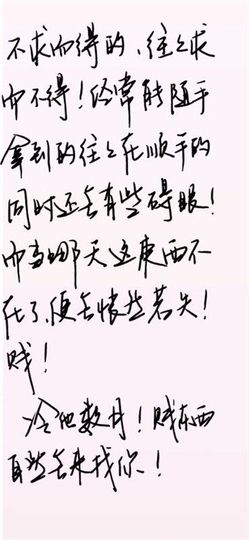 不求而得的、往往求
而不得！经常能随手
拿到的往往在顺手的
同时还会有些碍眼！
而当哪天这東西不
在了、便会怅然若失！
贱！
冷他数月！贱东西
自然会来找你！